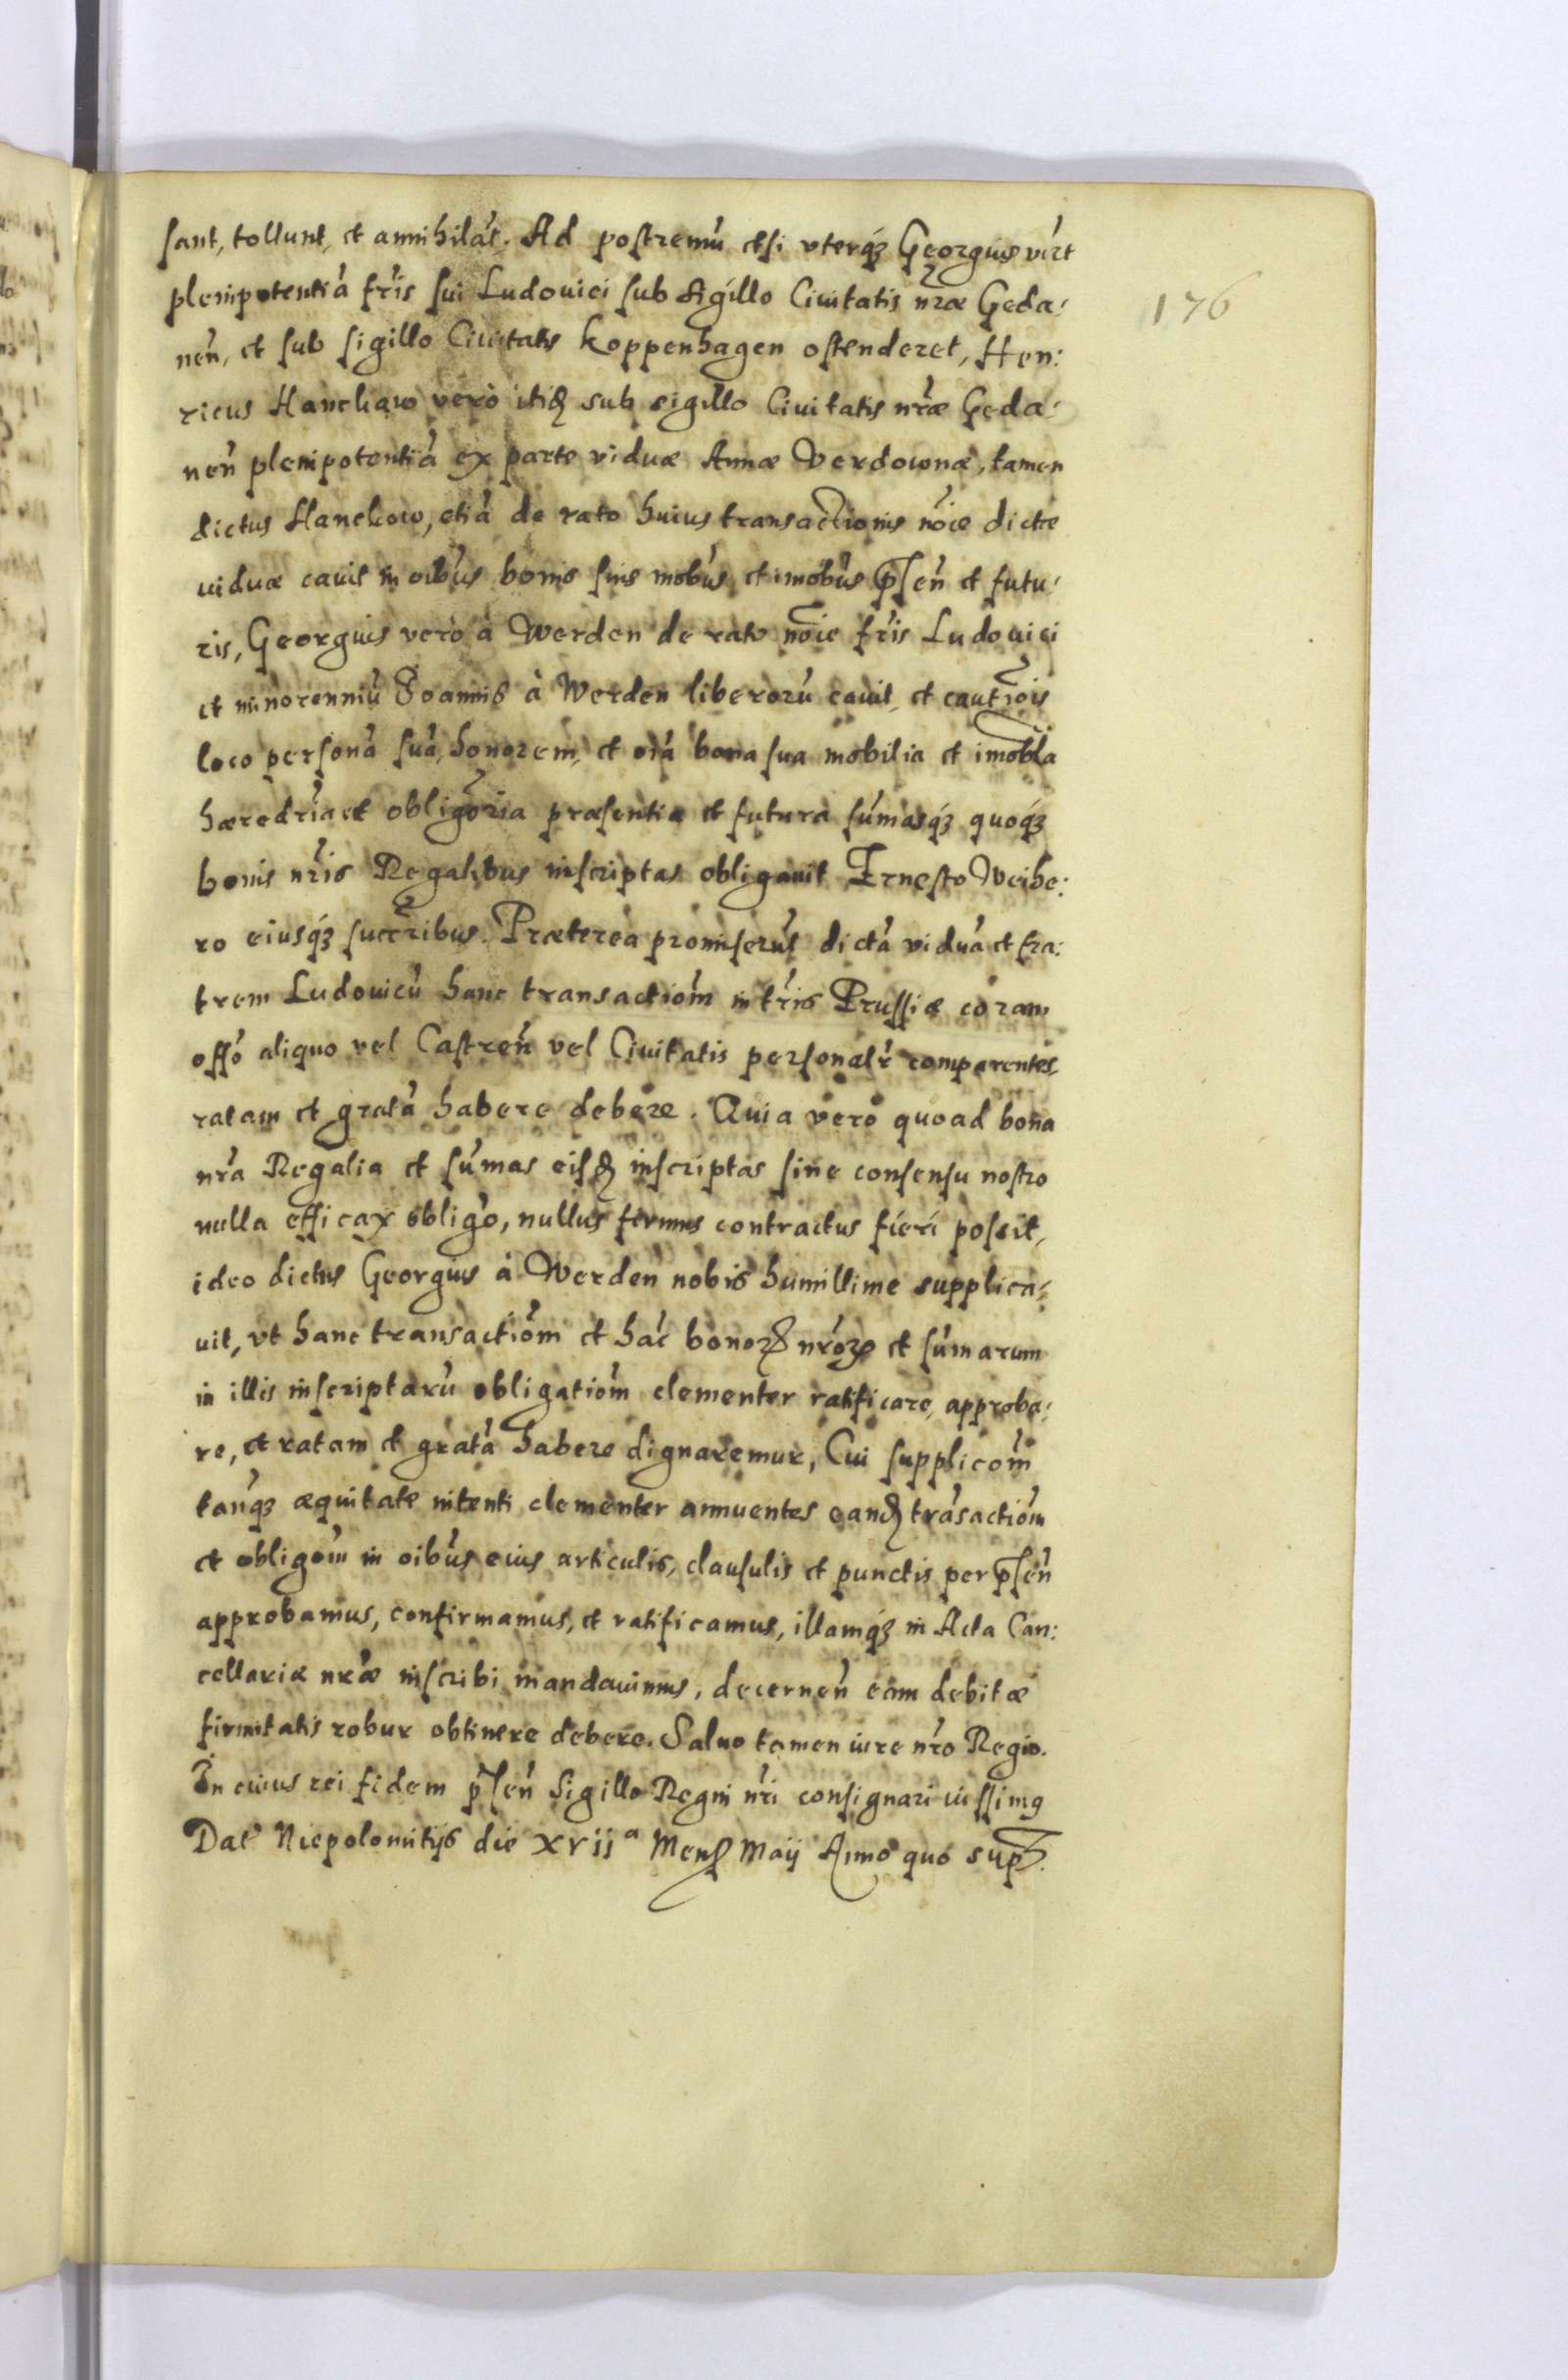 sant, tollunt, et annihilāt. Ad postremū etsi vterq́ꝫ Georgius vict
plenipotentiā fr̄is sui Ludouici sub sigillo Ciuitatis nr̄æ Geda:
nen̄, et sub sigillo Ciuitatis Koppenhagen ostenderet, Hen:
ricus Hanckaw verò itid̄ sub sigillo Ciuitatis nr̄æ Geda:
nen̄ plenipotentiā ex parte viduæ Annæ Verdownæ, tamen
dictus Hanckow, etiā de rato huius transactionis nōie dictæ
uiduæ cauit in oībus bonis suis mobūs et imobūs p̄sen̄ et futu:
ris, Georgius verò à Werden de rato nōie fr̄is Ludouici
et minorenniū Joannis à Werden liberorū cauit, et cautiōis
loco personā suā, honorem, et oīa bona sua mobilia et imobl̄a
hæredr̄ia et obligōria præsentia et futura sūmasq́ꝫ quoq́ꝫ
bonis nr̄is Regalibus inscriptas obligauit Ernesto Weihe:
ro eiusq́ꝫ succr̄ibus. Præterea promiserūt dictā viduā et fra:
trem Ludouicū hanc transactiōm in tr̄ris Prussiæ coram
offō aliquo vel Castren̄ vel Ciuitatis personalr̄ comparentes
ratam et gratā habere debere. Quia vero quoad bona
nr̄a Regalia et sūmas eisd̄ inscriptas sine consensu nostro
nulla efficax obligō, nullus firmus contractus fieri possit,
ideo dictus Georgius à Werden nobis humillime supplica:
uit, vt hanc transactiōm et hāc bonoꝝ nr̄oꝝ et sūmarum
in illis inscriptarū obligatiōm clementer ratificare, approba:
re, et ratam et gratā habere dignaremur, Cui supplicōm
tanq̄ꝫ æquitate nitenti clementer annuentes eand̄ trāsactiōm
et obligōm in oībus eius articulis, clausulis et punctis per p̄sen̄
approbamus, confirmamus, et ratificamus, illamq́ꝫ in Acta Can:
cellariæ nr̄æ inscribi mandauimus, decernen̄ eam debitæ
firmitatis robur obtinere debere. Saluo tamen iure nr̄o Regio.
In cuius rei fidem p̄sen̄ Sigillo Regni nr̄i consignari iussimꝰ
Dat̄ Niepolomitijs die xviiª Mens̄ Maij Anno quo sup̄.
176